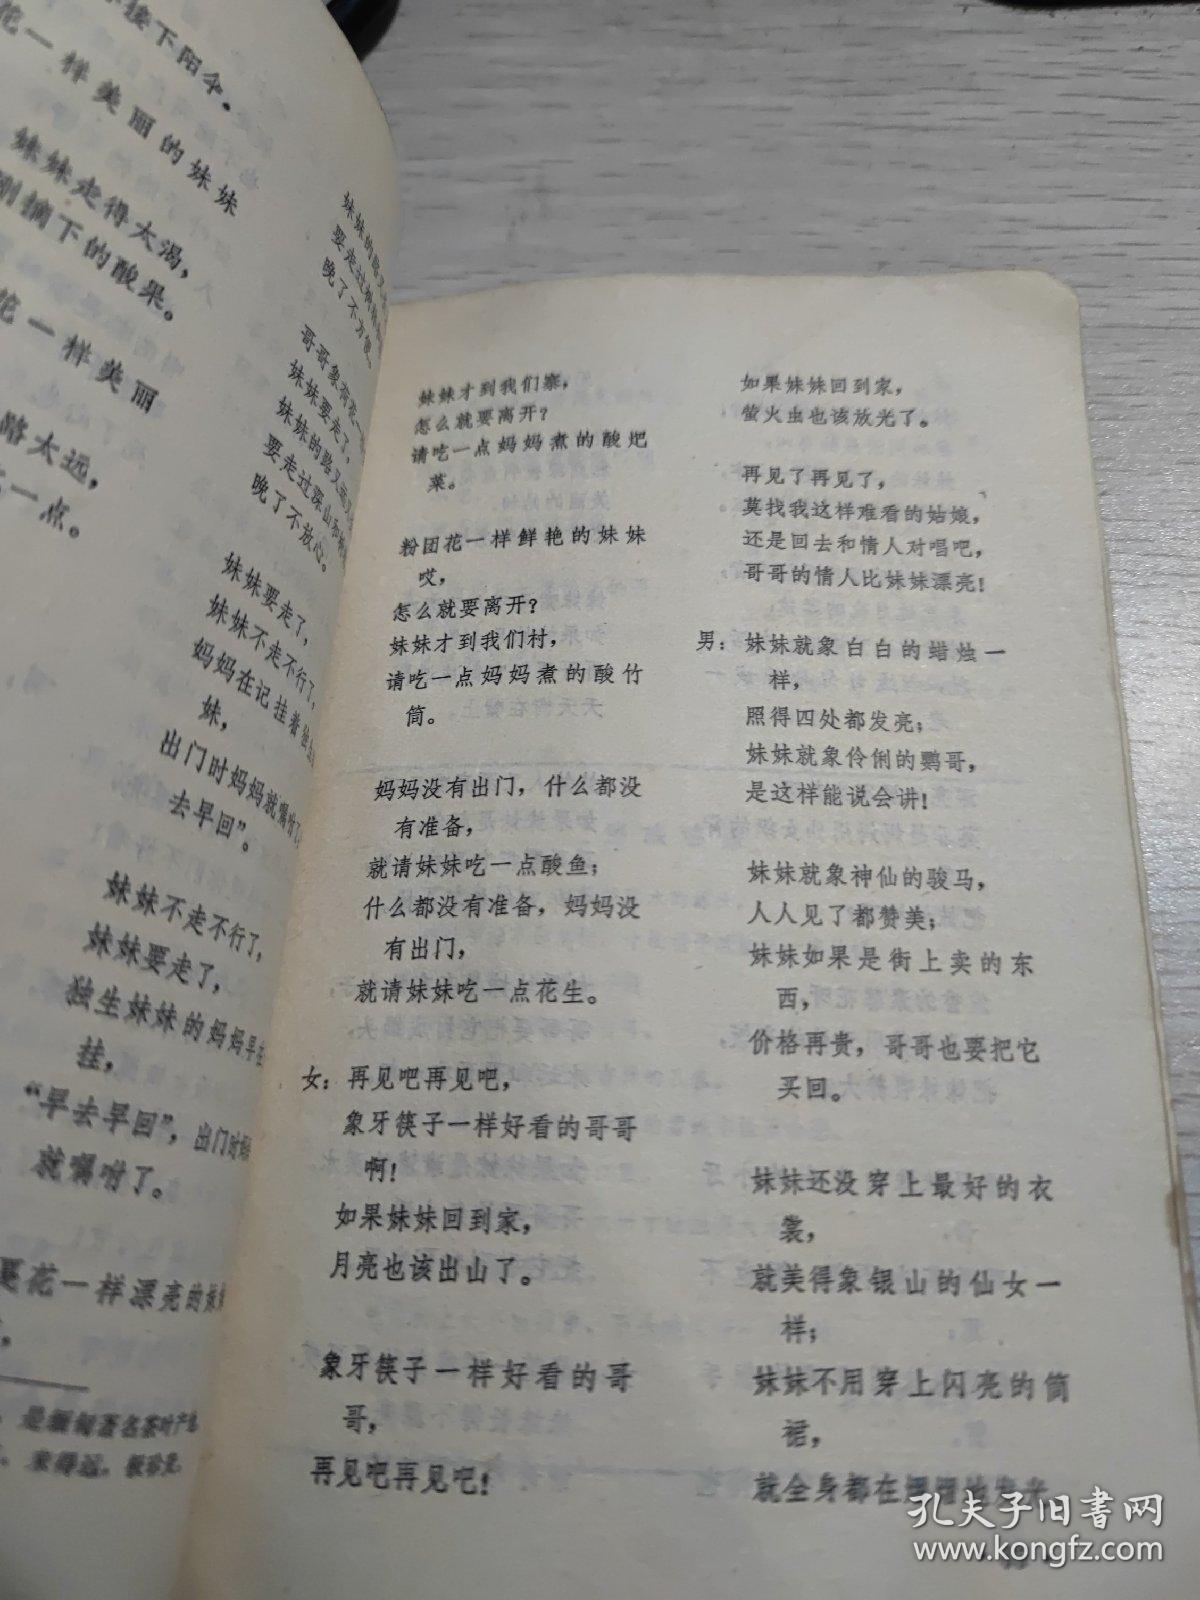 接下阳伞。
花一样美丽的妹妹
妹妹走得太渴，
刚摘下的酸果。
花一样美丽
路太远，
一点。
妹妹的路又
要走过
晚了不方便。
哥哥象荷花一
妹妹要走了，
妹妹的路又
要走过深山和
晚了不放心。
妹妹要走了，
妹妹不走不行了，
妈妈在记挂着独
妹，
出门时妈妈就嘱咐了
去早回”。
妹妹不走不行了，
妹妹要走了，
独生妹妹的妈妈早在
挂，
“早去早回”，出门时
就嘱咐了。
花一样漂亮的妹
妹妹才到我们寨，
怎么就要离开？
请吃一点妈妈煮的酸𤆵
菜。
粉团花一样鲜艳的妹妹
哎，
怎么就要离开？
妹妹才到我们村，
请吃一点妈妈煮的酸竹
筒。
妈妈没有出门，什么都没
有准备，
就请妹妹吃一点酸鱼；
什么都没有准备，妈妈没
有出门，
就请妹妹吃一点花生。
女：再见吧再见吧，
象牙筷子一样好看的哥哥
啊！
如果妹妹回到家，
月亮也该出山了。
象牙筷子一样好看的哥
哥，
再见吧再见吧！
如果妹妹回到家，
萤火虫也该放光了。
再见了再见了，
莫找我这样难看的姑娘，
还是回去和情人对唱吧，
哥哥的情人比妹妹漂亮！
男：妹妹就象白白的蜡烛一
样，
照得四处都发亮；
妹妹就象伶俐的鹦哥，
是这样能说会讲！
妹妹就象神仙的骏马，
人人见了都赞美；
妹妹如果是街上卖的东
西，
价格再贵，哥哥也要把它
买回。
妹妹还没穿上最好的衣
裳，
就美得象银山的仙女一
样；
妹妹不用穿上闪亮的筒
裙，
就全身都在
孔夫子旧书网
www.kongfz.com